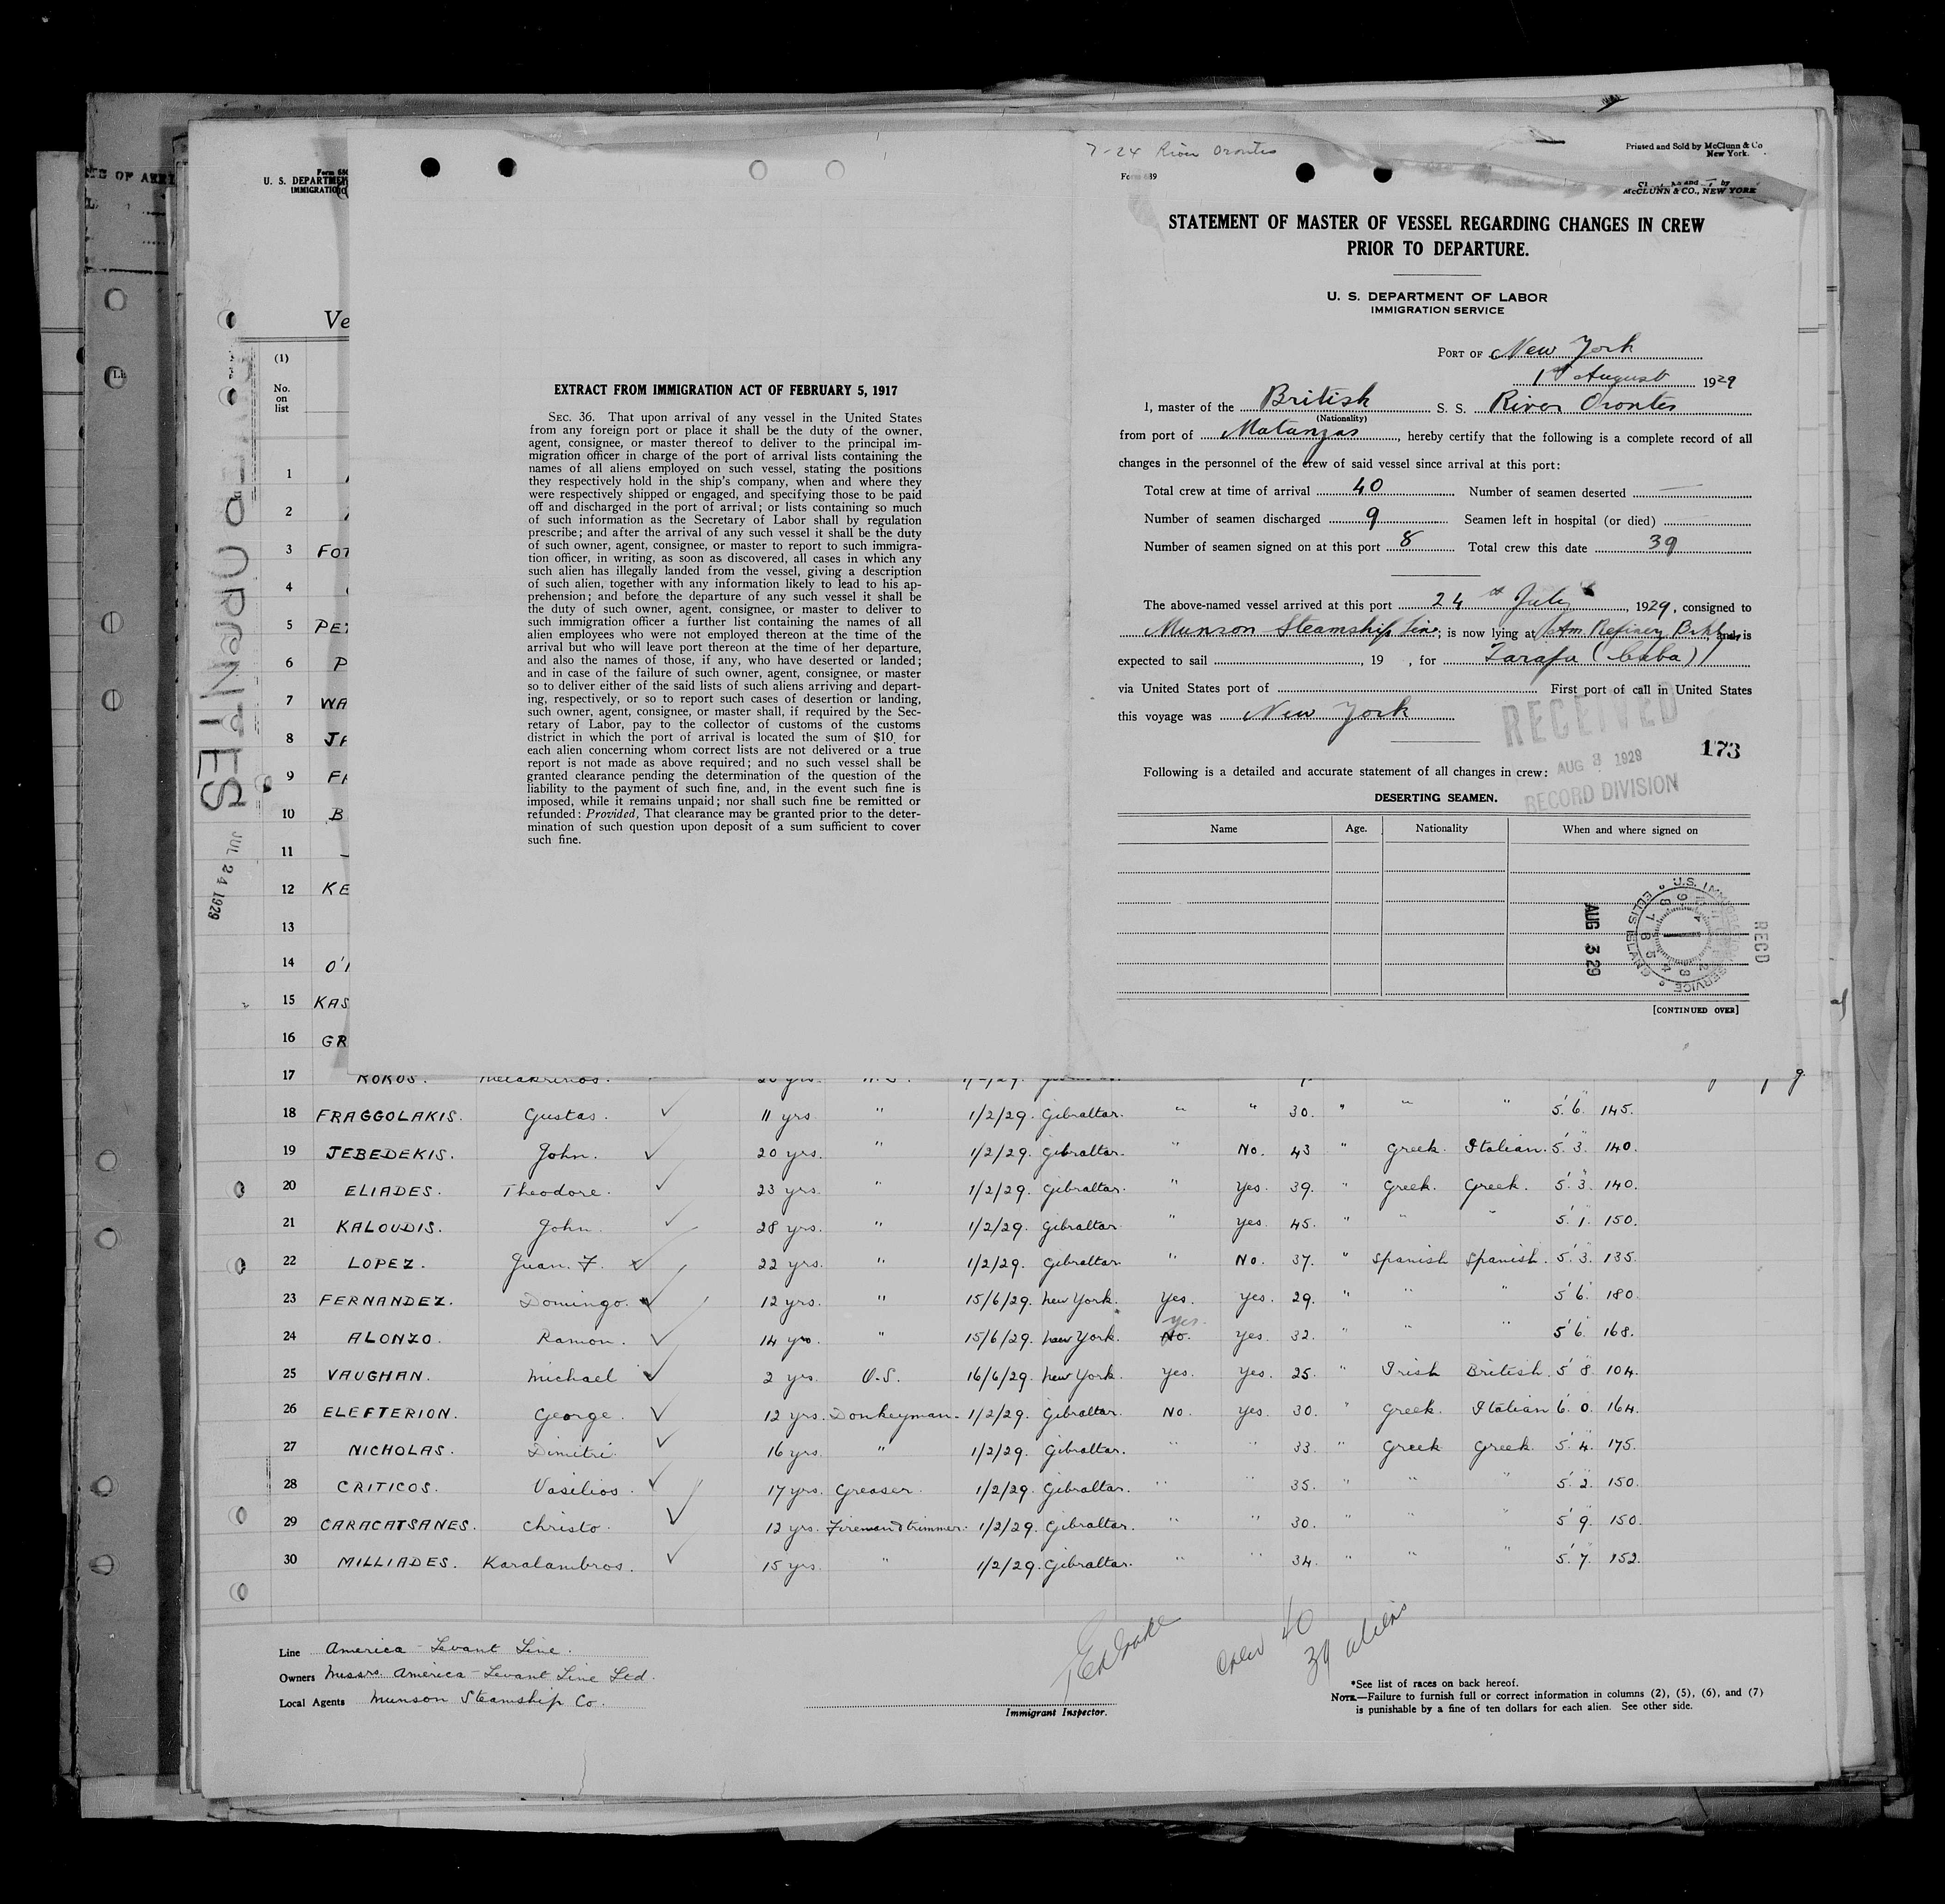 7-24 River Orontes
Form 689
Printed and Sold by McClunn & Co
New York.
McCLUNN & CO., NEW YORK
STATEMENT OF MASTER OF VESSEL REGARDING CHANGES IN CREW
PRIOR TO DEPARTURE.
U. S. DEPARTMENT OF LABOR
IMMIGRATION SERVICE
PORT OF New York
1st August 1929
I, master of the British S. S. River Orontes
(Nationality)
from port of Matanzas, hereby certify that the following is a complete record of all
changes in the personnel of the crew of said vessel since arrival at this port:
Total crew at time of arrival 40 Number of seamen deserted —
Number of seamen discharged 9 Seamen left in hospital (or died)
Number of seamen signed on at this port 8 Total crew this date 39
The above-named vessel arrived at this port 24th July, 1929, consigned to
Munson Steamship Line; is now lying at Am. Refinery Bkln, and is
expected to sail , 19 , for Tarafa (Cuba)
via United States port of First port of call in United States
this voyage was New York
RECEIVED
AUG 3 1929
RECORD DIVISION
173
Following is a detailed and accurate statement of all changes in crew:
DESERTING SEAMEN.
Name Age. Nationality When and where signed on
U.S. IMMIGRATION SERVICE
ELLIS ISLAND
AUG 3 29
RECD
[CONTINUED OVER]
EXTRACT FROM IMMIGRATION ACT OF FEBRUARY 5, 1917
SEC. 36. That upon arrival of any vessel in the United States
from any foreign port or place it shall be the duty of the owner,
agent, consignee, or master thereof to deliver to the principal im-
migration officer in charge of the port of arrival lists containing the
names of all aliens employed on such vessel, stating the positions
they respectively hold in the ship's company, when and where they
were respectively shipped or engaged, and specifying those to be paid
off and discharged in the port of arrival; or lists containing so much
of such information as the Secretary of Labor shall by regulation
prescribe; and after the arrival of any such vessel it shall be the duty
of such owner, agent, consignee, or master to report to such immigra-
tion officer, in writing, as soon as discovered, all cases in which any
such alien has illegally landed from the vessel, giving a description
of such alien, together with any information likely to lead to his ap-
prehension; and before the departure of any such vessel it shall be
the duty of such owner, agent, consignee, or master to deliver to
such immigration officer a further list containing the names of all
alien employees who were not employed thereon at the time of the
arrival but who will leave port thereon at the time of her departure,
and also the names of those, if any, who have deserted or landed;
and in case of the failure of such owner, agent, consignee, or master
so to deliver either of the said lists of such aliens arriving and depart-
ing, respectively, or so to report such cases of desertion or landing,
such owner, agent, consignee, or master shall, if required by the Sec-
retary of Labor, pay to the collector of customs of the customs
district in which the port of arrival is located the sum of $10 for
each alien concerning whom correct lists are not delivered or a true
report is not made as above required; and no such vessel shall be
granted clearance pending the determination of the question of the
liability to the payment of such fine, and, in the event such fine is
imposed, while it remains unpaid; nor shall such fine be remitted or
refunded: Provided, That clearance may be granted prior to the deter-
mination of such question upon deposit of a sum sufficient to cover
such fine.
U. S. DEPARTME
IMMIGRATIO
Ve
(1)
No.
on
list
ORONTES
JUL 24 1929
1
2
3 FOT
4
5 PET
6 P
7 WA
8 JA
9 FA
10 B
11
12 KE
13
14 O'
15 KAS
16 GR
17 KOKOS.
18 FRAGGOLAKIS. Gustas. 11 yrs " 1/2/29. Gibraltar. " " 30. " " " 5' 6" 145.
19 JEBEDEKIS. John. 20 yrs. " 1/2/29. Gibraltar. " No. 43 " Greek. Italian. 5' 3" 140.
20 ELIADES. Theodore. 23 yrs. " 1/2/29. Gibraltar. " Yes. 39. " Greek. Greek. 5' 3" 140.
21 KALOUDIS. John. 28 yrs. " 1/2/29. Gibraltar " Yes. 45. " " " 5' 1" 150.
22 LOPEZ. Juan. F. 22 yrs. " 1/2/29. Gibraltar " No. 37. " Spanish Spanish. 5' 3" 135.
23 FERNANDEZ. Domingo. 12 yrs. " 15/6/29. New York. Yes. Yes. 29. " " " 5' 6" 180.
24 ALONZO. Ramon. 14 yrs. " 15/6/29. New York. No. yes. Yes. 32. " " " 5' 6" 168.
25 VAUGHAN. Michael 2 yrs. O.S. 16/6/29. New York. Yes. Yes. 25. " Irish British. 5' 8" 104.
26 ELEFTERION. George. 12 yrs. Donkeyman. 1/2/29. Gibraltar. No. Yes. 30. " Greek. Italian 6' 0" 164.
27 NICHOLAS. Dimitri. 16 yrs. " 1/2/29. Gibraltar. " " 33. " Greek Greek. 5' 4" 175.
28 CRITICOS. Vasilios. 17 yrs. Greaser. 1/2/29. Gibraltar. " " 35. " " " 5' 2" 150.
29 CARACATSANES. Christo. 12 yrs. Fireman & trimmer. 1/2/29. Gibraltar. " " 30. " " " 5' 9" 150.
30 MILLIADES. Karalambros. 15 yrs. " 1/2/29. Gibraltar. " " 34. " " " 5' 7" 152.
Line America-Levant Line.
Owners Messrs. America-Levant Line Ltd.
Local Agents Munson Steamship Co.
Immigrant Inspector.
Crew 40
39 aliens
*See list of races on back hereof.
NOTE.—Failure to furnish full or correct information in columns (2), (5), (6), and (7)
is punishable by a fine of ten dollars for each alien. See other side.